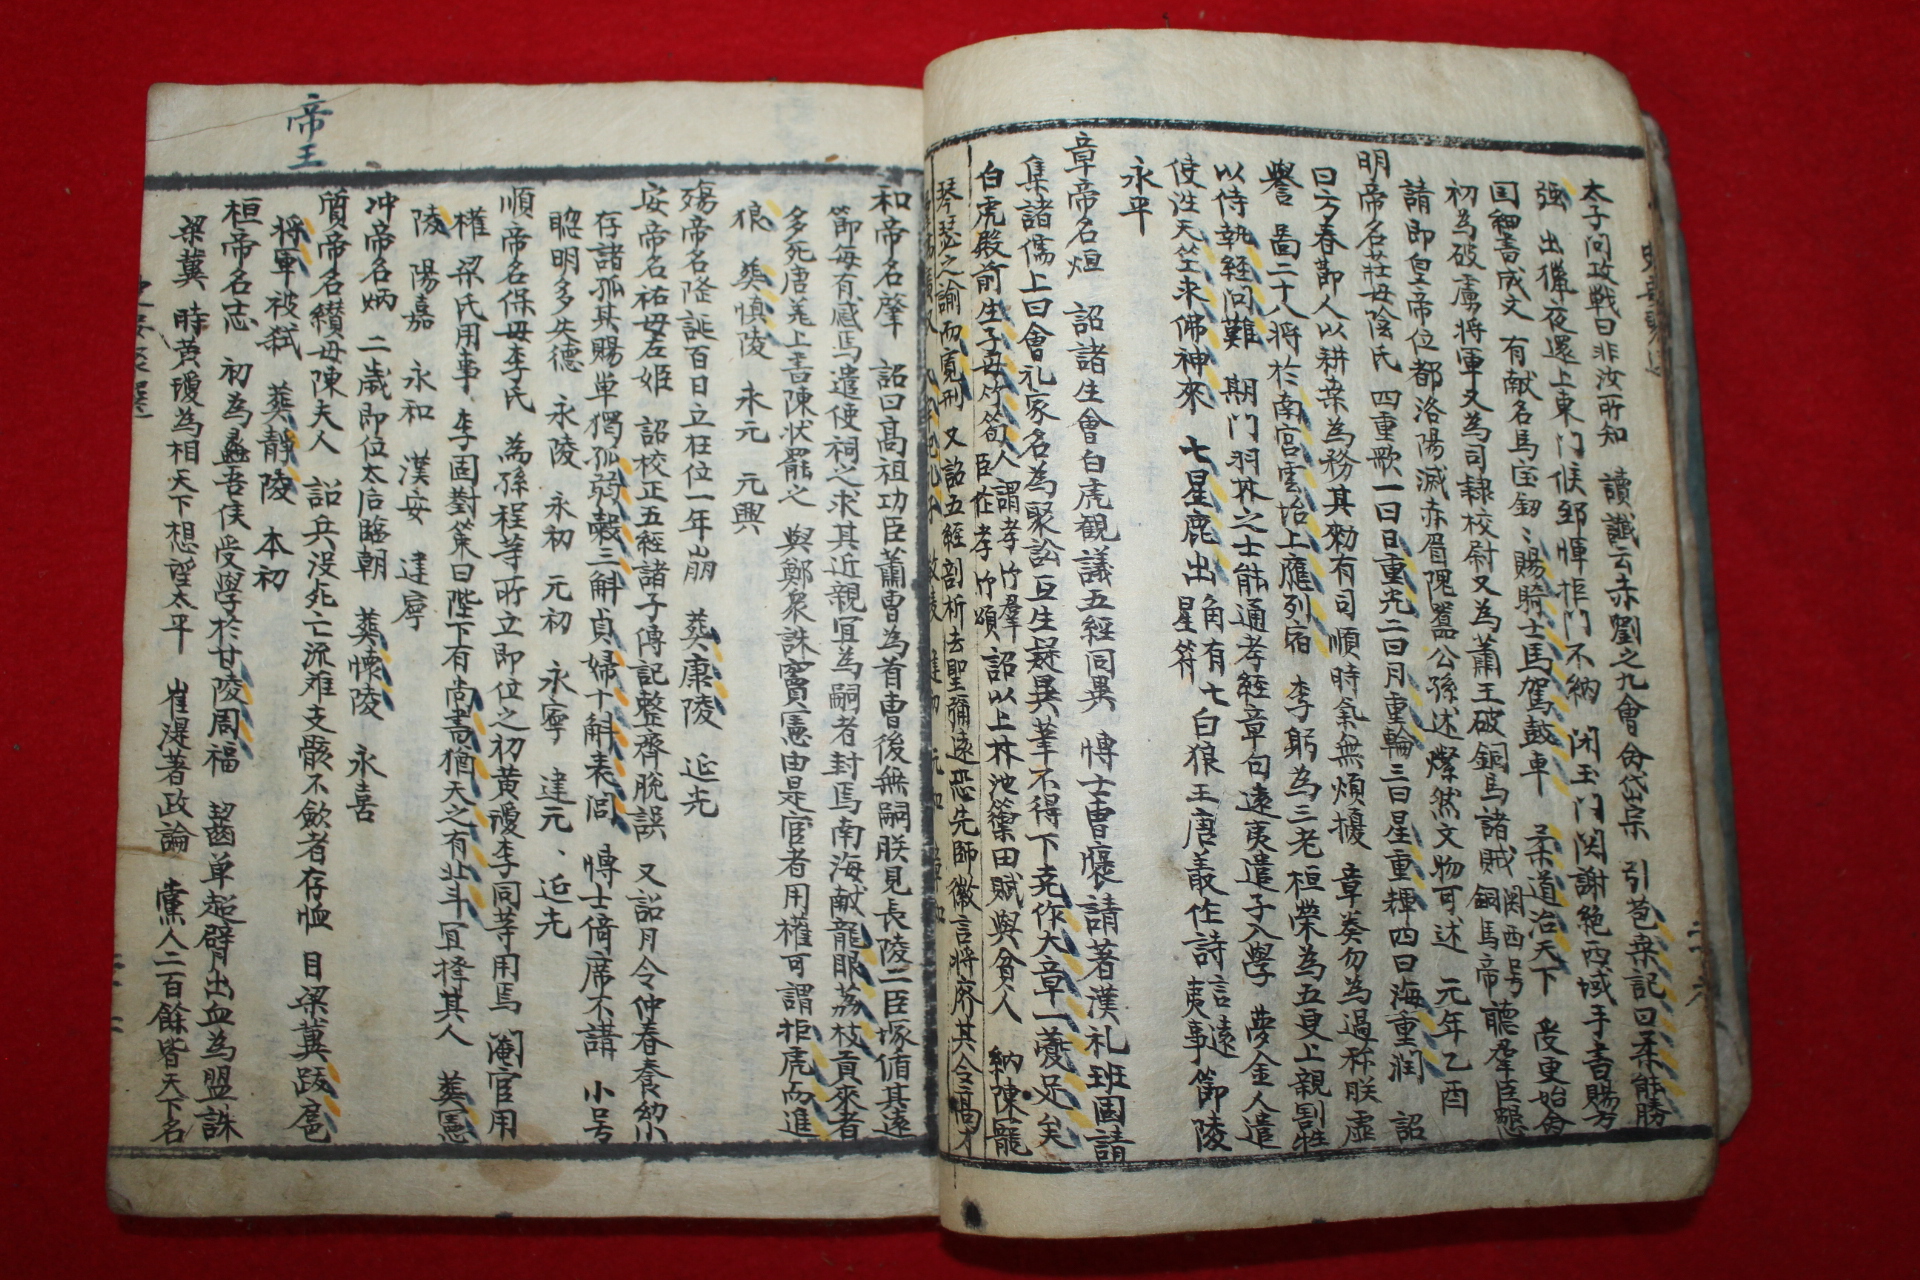 太子问攻戦曰非汝所知 讀讖云赤劉之九會命岱宗 引苞桒記曰柔能勝
强 出獵夜還上東門候郅惲拒門不納 闭玉门関謝絶西域手書賜方
国細書成文 有献名馬宝釼〻賜騎士馬駕鼓車 柔道治天下
初為破虜将軍又為司隷校尉又為蕭王破銅馬諸賊関西号銅馬帝
請即皇帝位都洛陽滅赤眉隗囂公孫述燦然文物可述 元年乙酉
明帝名莊母陰氏 四重歌一曰日重光二曰月重輪三曰星重輝四曰海重润 詔
曰方春節人以耕桒為務其勑有司順時氣無煩擾 章奏勿為過称朕虚
譽 畵二十八将於南宫雲坮上應列宿 李躬為三老桓榮為五更上親割牲
以侍執經问難 期门羽林之士能通孝經章句遠夷遣子入學 夢金人遣
使迬天竺求佛神來 七星鹿出角有七星符 白狼王唐菆作詩言遠夷事 節陵
永平
章帝名烜 詔諸生會白虎観議五經同異 博士曹褒請著漢礼班固請
集諸儒上曰會礼家名為聚訟互生疑異筆不得下尭作大章一夔足矣
白虎殿前生子母竹筍人謂孝竹羣臣作孝竹頌 詔以上林池籞田賦與貧人 納陳寵
琴瑟之諭而寛刑 又詔五經剖析去聖彌遠恐先師微言将廃其令高才
和帝名肇 詔曰高祖功臣蕭曹為首曹後無嗣朕見長陵二臣塚循其遠
節每有感焉遣使祠之求其近親冝為嗣者封焉南海献龍眼荔枝貢來者
多死唐羗上書陳状罷之 與鄭衆誅竇憲由是宦者用權可謂拒虎而進
狼 葬慎陵 永元 元興
殤帝名隆誕百日立在位一年崩 葬康陵 延光
安帝名祐母左姬 詔校正五經諸子傳記整齊脱誤 又詔月令仲春養幼小
存諸孤其賜单獨孤弱穀三斛貞婦十斛表闾 博士倚席不講 小号
聡明多失德 永陵 永初 元初 永寧 建元、延光
順帝名保母李氏 為孫程等所立即位之初黄瓊李同等用焉 阉官用
權 梁氏用事 李固對策曰陛下有尚書猶天之有北斗冝擇其人 葬憲
陵 陽嘉 永和 漢安 建寧
冲帝名炳 二歳即位太后臨朝 葬懷陵 永喜
質帝名纉母陳夫人 詔兵没死亡流难支骸不歛者存恤 目梁冀跋扈
将軍被弑 葬静陵 本初
桓帝名志 初為蠡吾侯受學於甘陵周福 齧单超臂出血為盟誅
梁冀 時黄瓊為相天下想望太平 崔湜著政論 黨人二百餘皆天下名
帝王